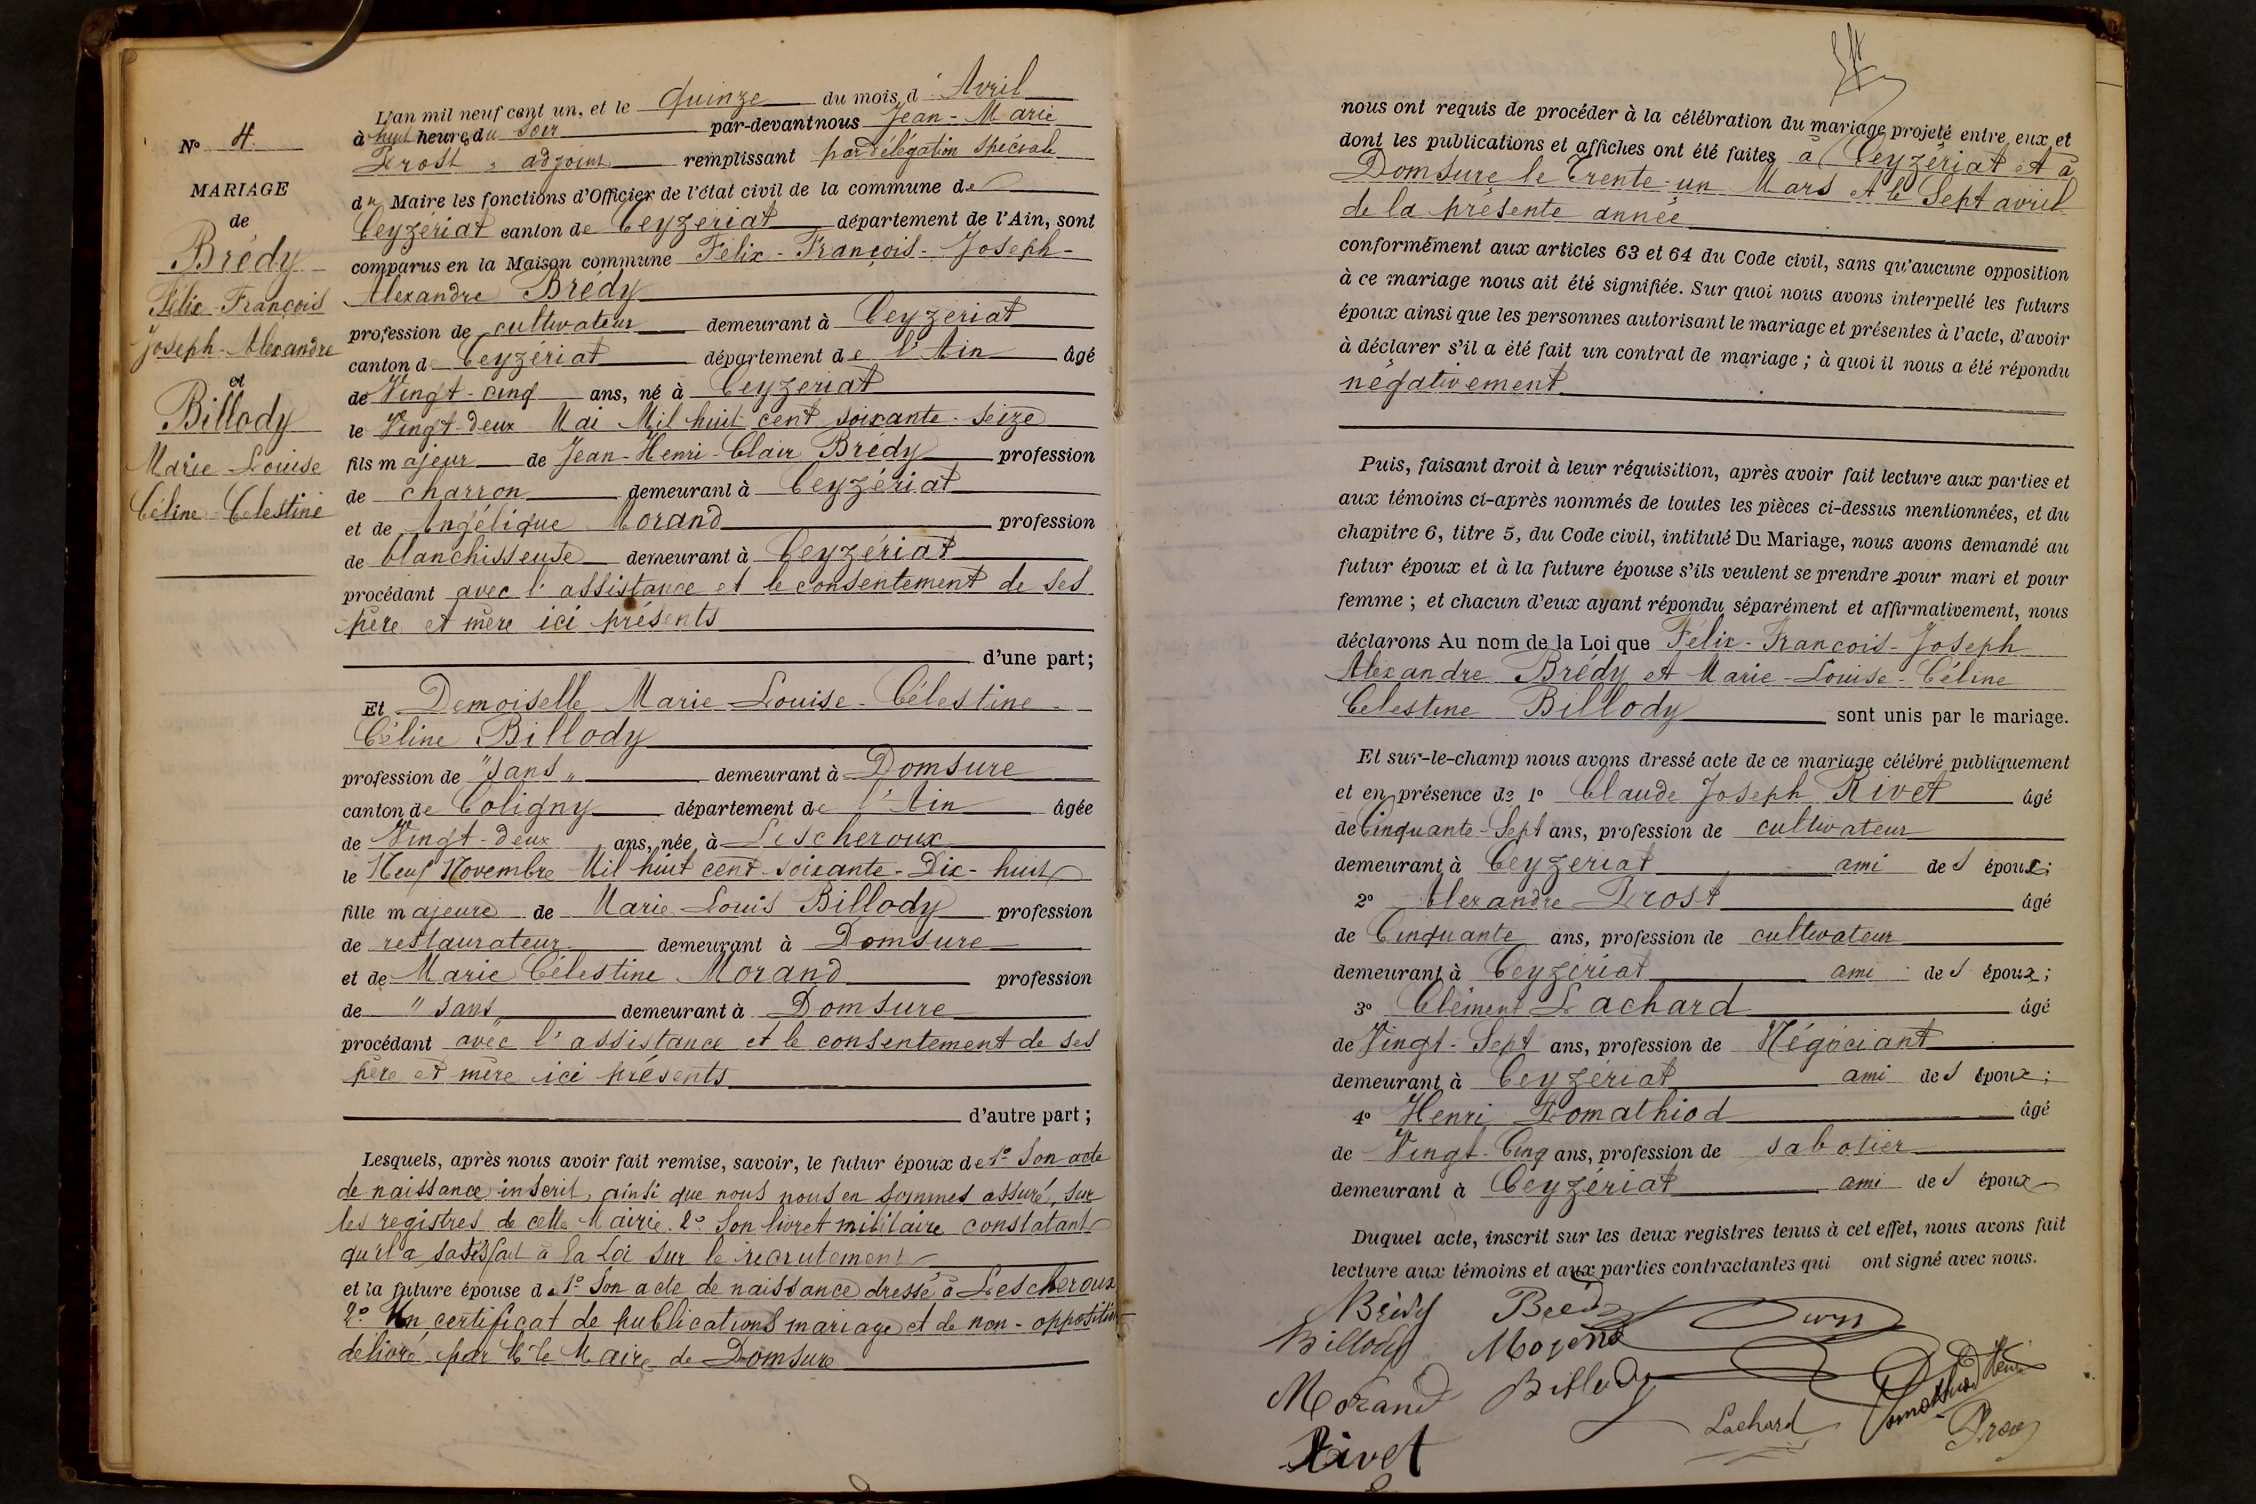 N° 4.
MARIAGE
de
Brédy
Félix-François
Joseph-Alexandre
et
Billody
Marie-Louise
Céline-Célestine
L'an mil neuf cent un, et le quinze du mois d'Avril
à huit heures du soir par-devant nous Jean-Marie
Prost, adjoint remplissant par délégation spéciale
du Maire les fonctions d'Officier de l'état civil de la commune de
Ceyzériat canton de Ceyzeriat département de l'Ain, sont
comparus en la Maison commune Félix-François-Joseph-
Alexandre Brédy
profession de cultivateur demeurant à Ceyzeriat
canton de Ceyzériat département de l'Ain âgé
de Vingt-cinq ans, né à Ceyzeriat
le Vingt-deux Mai Mil huit cent soixante-seize
fils majeur de Jean-Henri-Clair Brédy profession
de charron demeurant à Ceyzériat
et de Angélique Morand profession
de blanchisseuse demeurant à Ceyzériat
procédant avec l'assistance et le consentement de ses
père et mère ici présents
d'une part;
Et Demoiselle Marie-Louise-Célestine-
Céline Billody
profession de "sans" demeurant à Domsure
canton de Coligny département de l'Ain âgée
de Vingt-deux ans, née à Lescheroux
le Neuf Novembre Mil huit cent soixante-Dix-huit
fille majeure de Marie-Louis Billody profession
de restaurateur demeurant à Domsure
et de Marie Célestine Morand profession
de "sans" demeurant à Domsure
procédant avec l'assistance et le consentement de ses
père et mère ici présents
d'autre part;
Lesquels, après nous avoir fait remise, savoir, le futur époux de 1° Son acte
de naissance inscrit, ainsi que nous nous en sommes assuré, sur
les registres de cette Mairie. 2° Son livret militaire constatant
qu'il a satisfait à la Loi sur le recrutement
et la future épouse de 1° Son acte de naissance dressé à Lescheroux
2° Un certificat de publications mariage et de non-opposition
délivré par M le Maire de Domsure
nous ont requis de procéder à la célébration du mariage projeté entre eux et
dont les publications et affiches ont été faites à Ceyzériat et à
Domsure le Trente-un Mars et le Sept avril
de la présente année
conformément aux articles 63 et 64 du Code civil, sans qu'aucune opposition
à ce mariage nous ait été signifiée. Sur quoi nous avons interpellé les futurs
époux ainsi que les personnes autorisant le mariage et présentes à l'acte, d'avoir
à déclarer s'il a été fait un contrat de mariage; à quoi il nous a été répondu
négativement
Puis, faisant droit à leur réquisition, après avoir fait lecture aux parties et
aux témoins ci-après nommés de toutes les pièces ci-dessus mentionnées, et du
chapitre 6, titre 5, du Code civil, intitulé Du Mariage, nous avons demandé au
futur époux et à la future épouse s'ils veulent se prendre pour mari et pour
femme; et chacun d'eux ayant répondu séparément et affirmativement, nous
déclarons Au nom de la Loi que Félix-François-Joseph
Alexandre Brédy et Marie-Louise-Céline
Celestine Billody sont unis par le mariage.
Et sur-le-champ nous avons dressé acte de ce mariage célébré publiquement
et en présence de 1° Claude Joseph Rivet âgé
de Cinquante-Sept ans, profession de cultivateur
demeurant à Ceyzeriat ami des époux;
2° Alexandre Prost âgé
de Cinquante ans, profession de cultivateur
demeurant à Ceyzériat ami des époux;
3° Clément Lachard âgé
de Vingt-Sept ans, profession de Négociant
demeurant à Ceyzériat ami des époux;
4° Henri Pomathiod âgé
de Vingt-Cinq ans, profession de sabotier
demeurant à Ceyzériat ami des époux
Duquel acte, inscrit sur les deux registres tenus à cet effet, nous avons fait
lecture aux témoins et aux parties contractantes qui ont signé avec nous.
Brédy Bredy
Billody Morand
Morand Billody
Lachard Pomathiod Henri
Rivet Prost